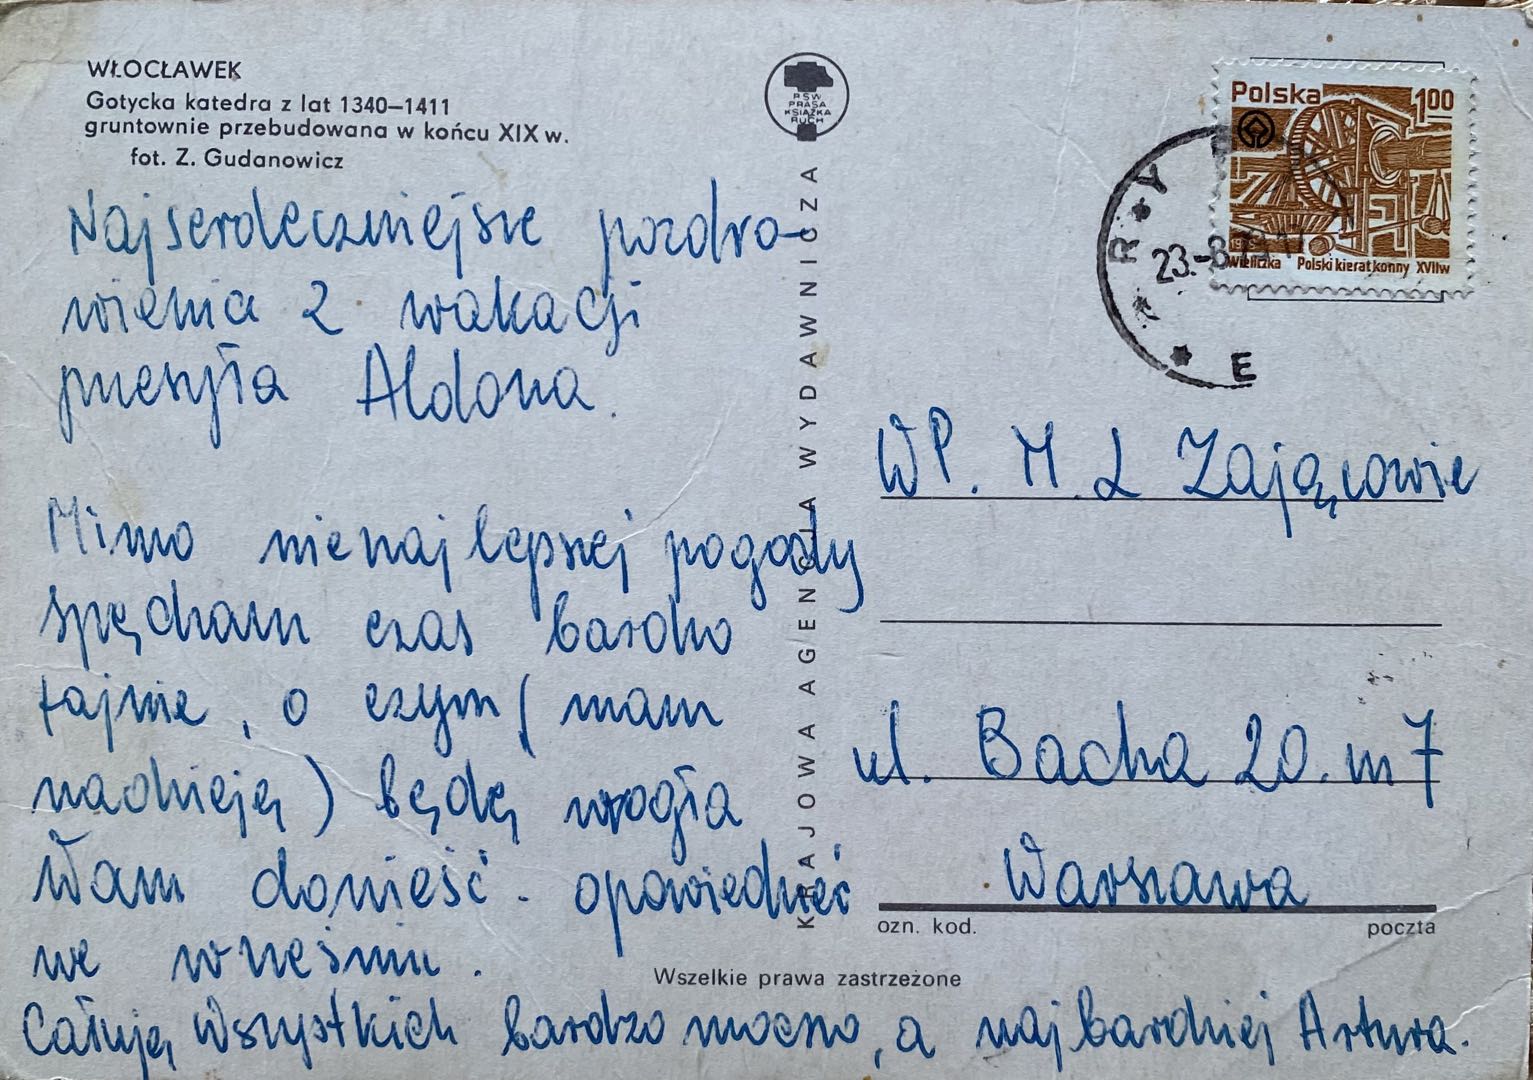 WŁOCŁAWEK
Gotycka katedra z lat 1340–1411
gruntownie przebudowana w końcu XIX w.
fot. Z. Gudanowicz
Najserdeczniejsze pozdro-
wienia z wakacji
przesyła Aldona.
Mimo nienajlepszej pogody
spędzam czas bardzo
fajnie, o czym (mam
nadzieję) będę mogła
Wam donieść. opowiedzieć
we wrześniu.
Całuję wszystkich bardzo mocno, a najbardziej Artura.
RSW
PRASA
KSIĄŻKA
RUCH
KRAJOWA AGENCJA WYDAWNICZA
Polska 1.00
Wieliczka Polski kierat konny XVII w
23.-8
WP. M. L Zającowie
ul. Bacha 20. m 7
Warszawa
ozn. kod. poczta
Wszelkie prawa zastrzeżone